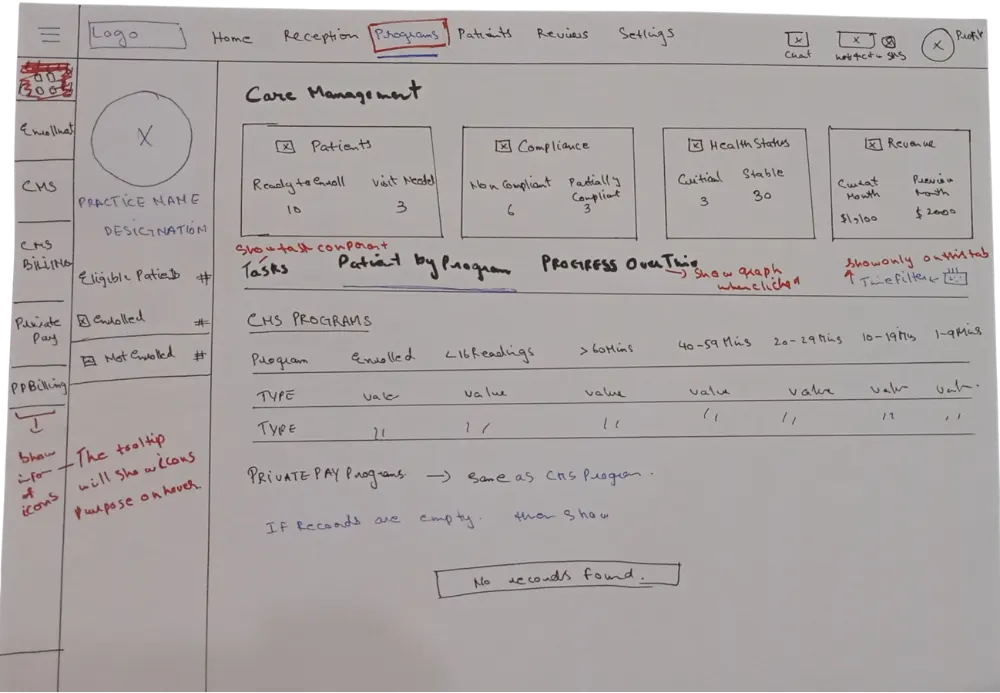 Logo
Home Reception Programs Patients Reviews Settings
Chat
SMS
Profile
Enrollment
CMS
CMS BILLING
Private Pay
PP Billing
Show info of icons
The tooltip will show icons purpose on hover
X
PRACTICE NAME
DESIGNATION
Eligible Patients #
Enrolled #
Not Enrolled #
Care Management
Patients
Ready to Enroll Visit Needed
10 3
Compliance
Non Compliant Partially Compliant
6 3
Health Status
Critical Stable
3 30
Revenue
Current Month Previous Month
$1,100 $2000
Show task component
Tasks Patient by Program PROGRESS Over Time
→ Show graph when clicked
Show only on this tab
Time Filter
CMS PROGRAMS
Program Enrolled <16 Readings >60 Mins 40-59 Mins 20-29 Mins 10-19 Mins 1-9 Mins
TYPE value value value value value value value
TYPE " " " " " " "
PRIVATE PAY Programs → Same as CMS Program.
IF Records are empty. then show
No records found.